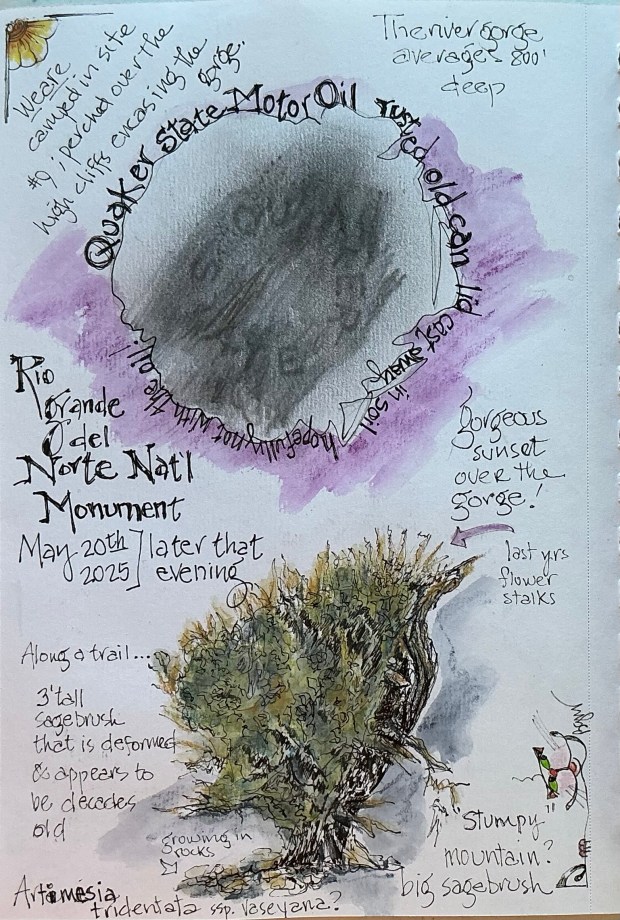 We are
camped in site
#9; perched over the
high cliffs encasing the
gorge.
The river gorge
averages 800'
deep
Quaker State Motor Oil rusted old can lid cast away in soil hopefully not with the oil!
Rio
Grande
del
Norte Nat'l
Monument
May 20th
2025
later that
evening
gorgeous
sunset
over the
gorge!
last yrs
flower
stalks
Along a trail...
3' tall
sagebrush
that is deformed
& appears to
be decades
old
growing in
rocks
"Stumpy"
mountain?
big sagebrush
Artemesia
tridentata ssp. vaseyana?